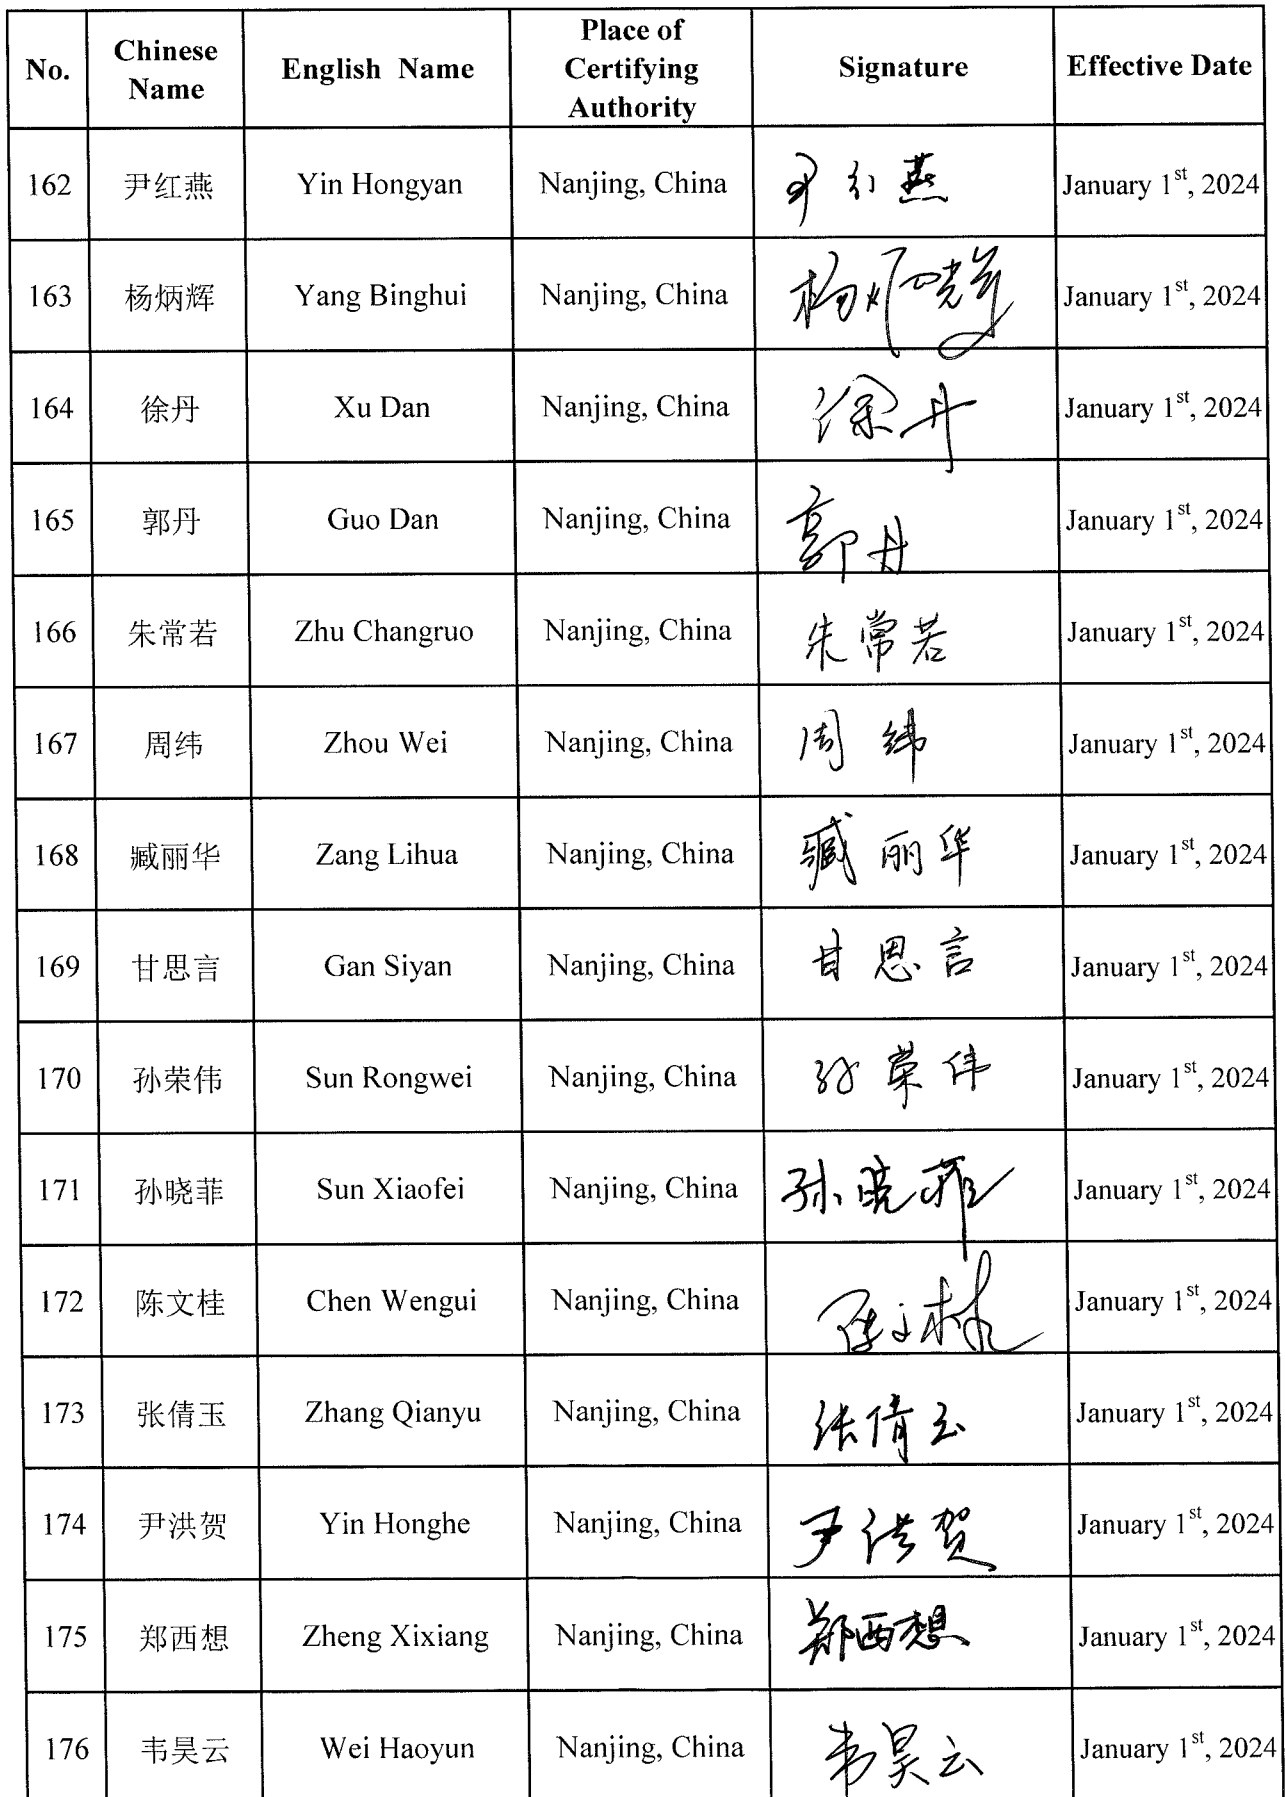 No. Chinese Name English Name Place of Certifying Authority Signature Effective Date
162 尹红燕 Yin Hongyan Nanjing, China 尹红燕 January 1st, 2024
163 杨炳辉 Yang Binghui Nanjing, China 杨炳辉 January 1st, 2024
164 徐丹 Xu Dan Nanjing, China 徐丹 January 1st, 2024
165 郭丹 Guo Dan Nanjing, China 郭丹 January 1st, 2024
166 朱常若 Zhu Changruo Nanjing, China 朱常若 January 1st, 2024
167 周纬 Zhou Wei Nanjing, China 周纬 January 1st, 2024
168 臧丽华 Zang Lihua Nanjing, China 臧丽华 January 1st, 2024
169 甘思言 Gan Siyan Nanjing, China 甘思言 January 1st, 2024
170 孙荣伟 Sun Rongwei Nanjing, China 孙荣伟 January 1st, 2024
171 孙晓菲 Sun Xiaofei Nanjing, China 孙晓菲 January 1st, 2024
172 陈文桂 Chen Wengui Nanjing, China 陈文桂 January 1st, 2024
173 张倩玉 Zhang Qianyu Nanjing, China 张倩玉 January 1st, 2024
174 尹洪贺 Yin Honghe Nanjing, China 尹洪贺 January 1st, 2024
175 郑西想 Zheng Xixiang Nanjing, China 郑西想 January 1st, 2024
176 韦昊云 Wei Haoyun Nanjing, China 韦昊云 January 1st, 2024